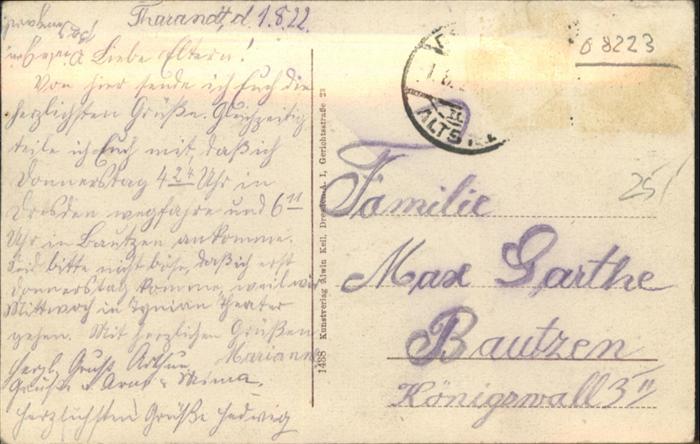 Tharandt, d. 1.8.22.
Liebe Eltern!
Von hier sende ich Euch die
herzlichsten Grüße. Gleichzeitig
teile ich Euch mit, daß ich
Donnerstag 4 24 Uhr in
Dresden wegfahre und 6 11
Uhr in Bautzen ankomme.
Seid bitte nicht böse, daß ich erst
Donnerstag komme, weil wir
Mittwoch in Theater
gehen. Mit herzlichen Grüßen
Marianne
Herzl. Gruß Arthur
Grüße
herzlichsten Grüße Hedwig
1438 Kunstverlag Alwin Keil, Dresden-A. 1, Gerichtsstraße 23
ALTST
08223
25/
Familie
Max Garthe
Bautzen
Königswall 3 II